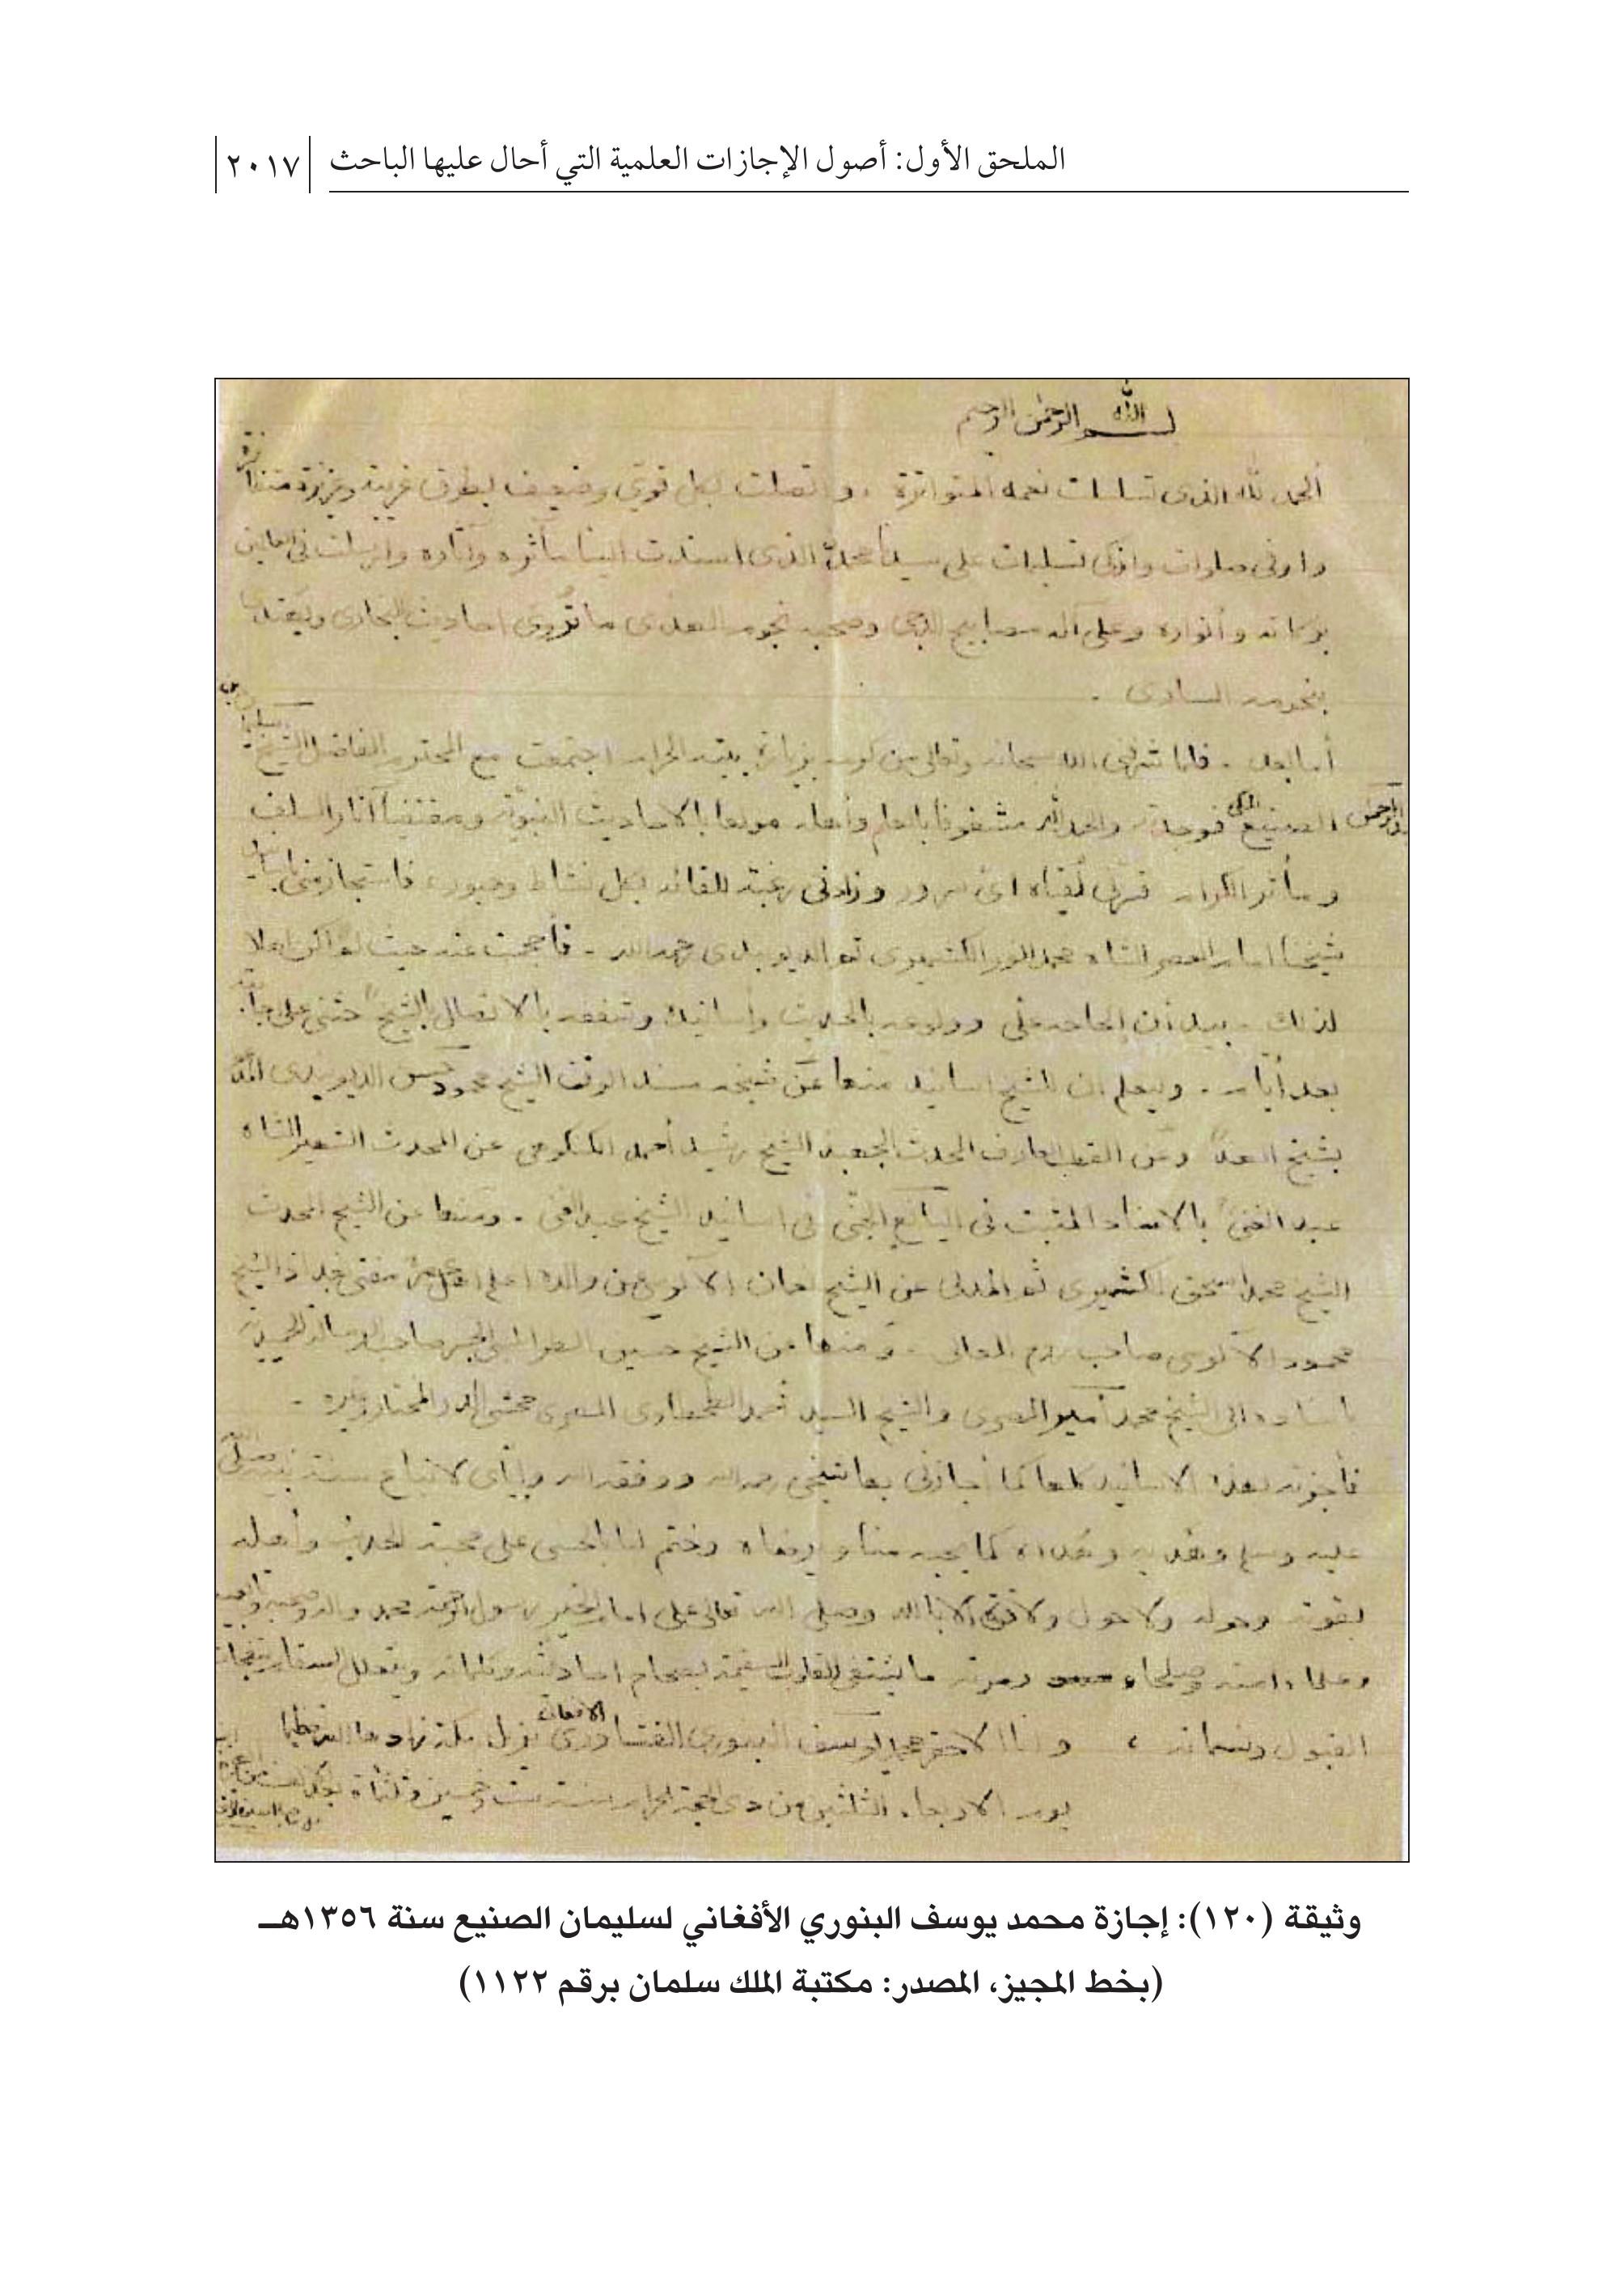 الملحق الأول: أصول الإجازات العلمية التي أحال عليها الباحث
٢٠١٧
بسم الله الرحمن الرحيم
ألحمد لله الذى تسلسلت نعمه المتواترة ، واتصلت بكل قوي وضعيف بطرق غريبة وعزيزة
واوفى صلوات وازكى تسليمات على سيدنا محمد الذى اسندت الينا مآثره وآثاره وارسلت فى العالمين
بركاته وأنواره وعلى آله مصابيح الدجى وصحبه نجوم الهدى ما تروى احاديث البخارى
بنجومه السارى .
أما بعد . فلما شرفنى الله سبحانه وتعالى من كرمه بزيارة بيته الحرام اجتمعت مع المحترم الفاضل الشيخ سليمان بن
عبد الرحمن الصنيع المكى فوجدته والحمد لله مشغوفا بالعلم وأهله مولعا بالاحاديث النبوية ومقتفيا آثار السلف
ومآثر الكرام فسرنى لقياه اى سرور وزادنى رغبة للقائه بكل نشاط وحبور، فاستجازمنى
شيخنا امام العصر الشاه محمد انور الكشميرى ثم الديوبندى رحمه الله . فأحجمت عنه حيث لم اكن اهلا
لذلك . بيد أن إلحاحه على وولوعه بالحديث وأسانيده وشغفه بالاتصال بالشيخ حثنى على
بعد أيام . وليعلم ان للشيخ اسانيد منها عن شيخه مسند الوقت الشيخ محمود حسن الديوبندى
بشيخ الهند وعن القطب العارف المحدث الشيخ رشيد أحمد الكنكوهى عن المحدث الشهير الشاه
عبد الغنى بالاسناد المثبت فى اليانع الجنى فى اسانيد الشيخ عبد الغنى . ومنها عن الشيخ المحدث
الشيخ محمد اسحق الكشميرى ثم المدنى عن الشيخ نعمان الآلوسى عن والده مفتى بغداد الشيخ
محمود الآلوسى صاحب روح المعانى . ومنها عن الشيخ حسين الطرابلسى الجسر صاحب الرسالة الحميدية
باسناده الى الشيخ محمد أمير المصرى والشيخ السيد أحمد الطحطاوى المصرى محشى الدر المختار وغيره .
فأجزته بهذه الاسانيد كلها كما أجازنى بها شيخى رحمه الله ووفقه الله وإياى لاتباع سنة نبيه صلى الله
عليه وسلم وهديه كما يحبه منا ويرضاه وختم لنا بالحسنى على محبة الحديث وأهله
بقوته وحوله ولا حول ولا قوة الا بالله وصلى الله تعالى على امام الخير رسول الرحمة محمد وآله وصحبه
وعلماء امته وصلحاء
القبول ، وانا الاحقر محمد يوسف البنورى الفشاورى الافغانى نزيل مكة زادها الله تعظيما
يوم الاربعاء الثلثين من ذى الحجة الحرام سنة ست وخمسين وثلثمائة
وثيقة (١٢٠): إجازة محمد يوسف البنوري الأفغاني لسليمان الصنيع سنة ١٣٥٦هـ
(بخط المجيز، المصدر: مكتبة الملك سلمان برقم ١١٢٢)